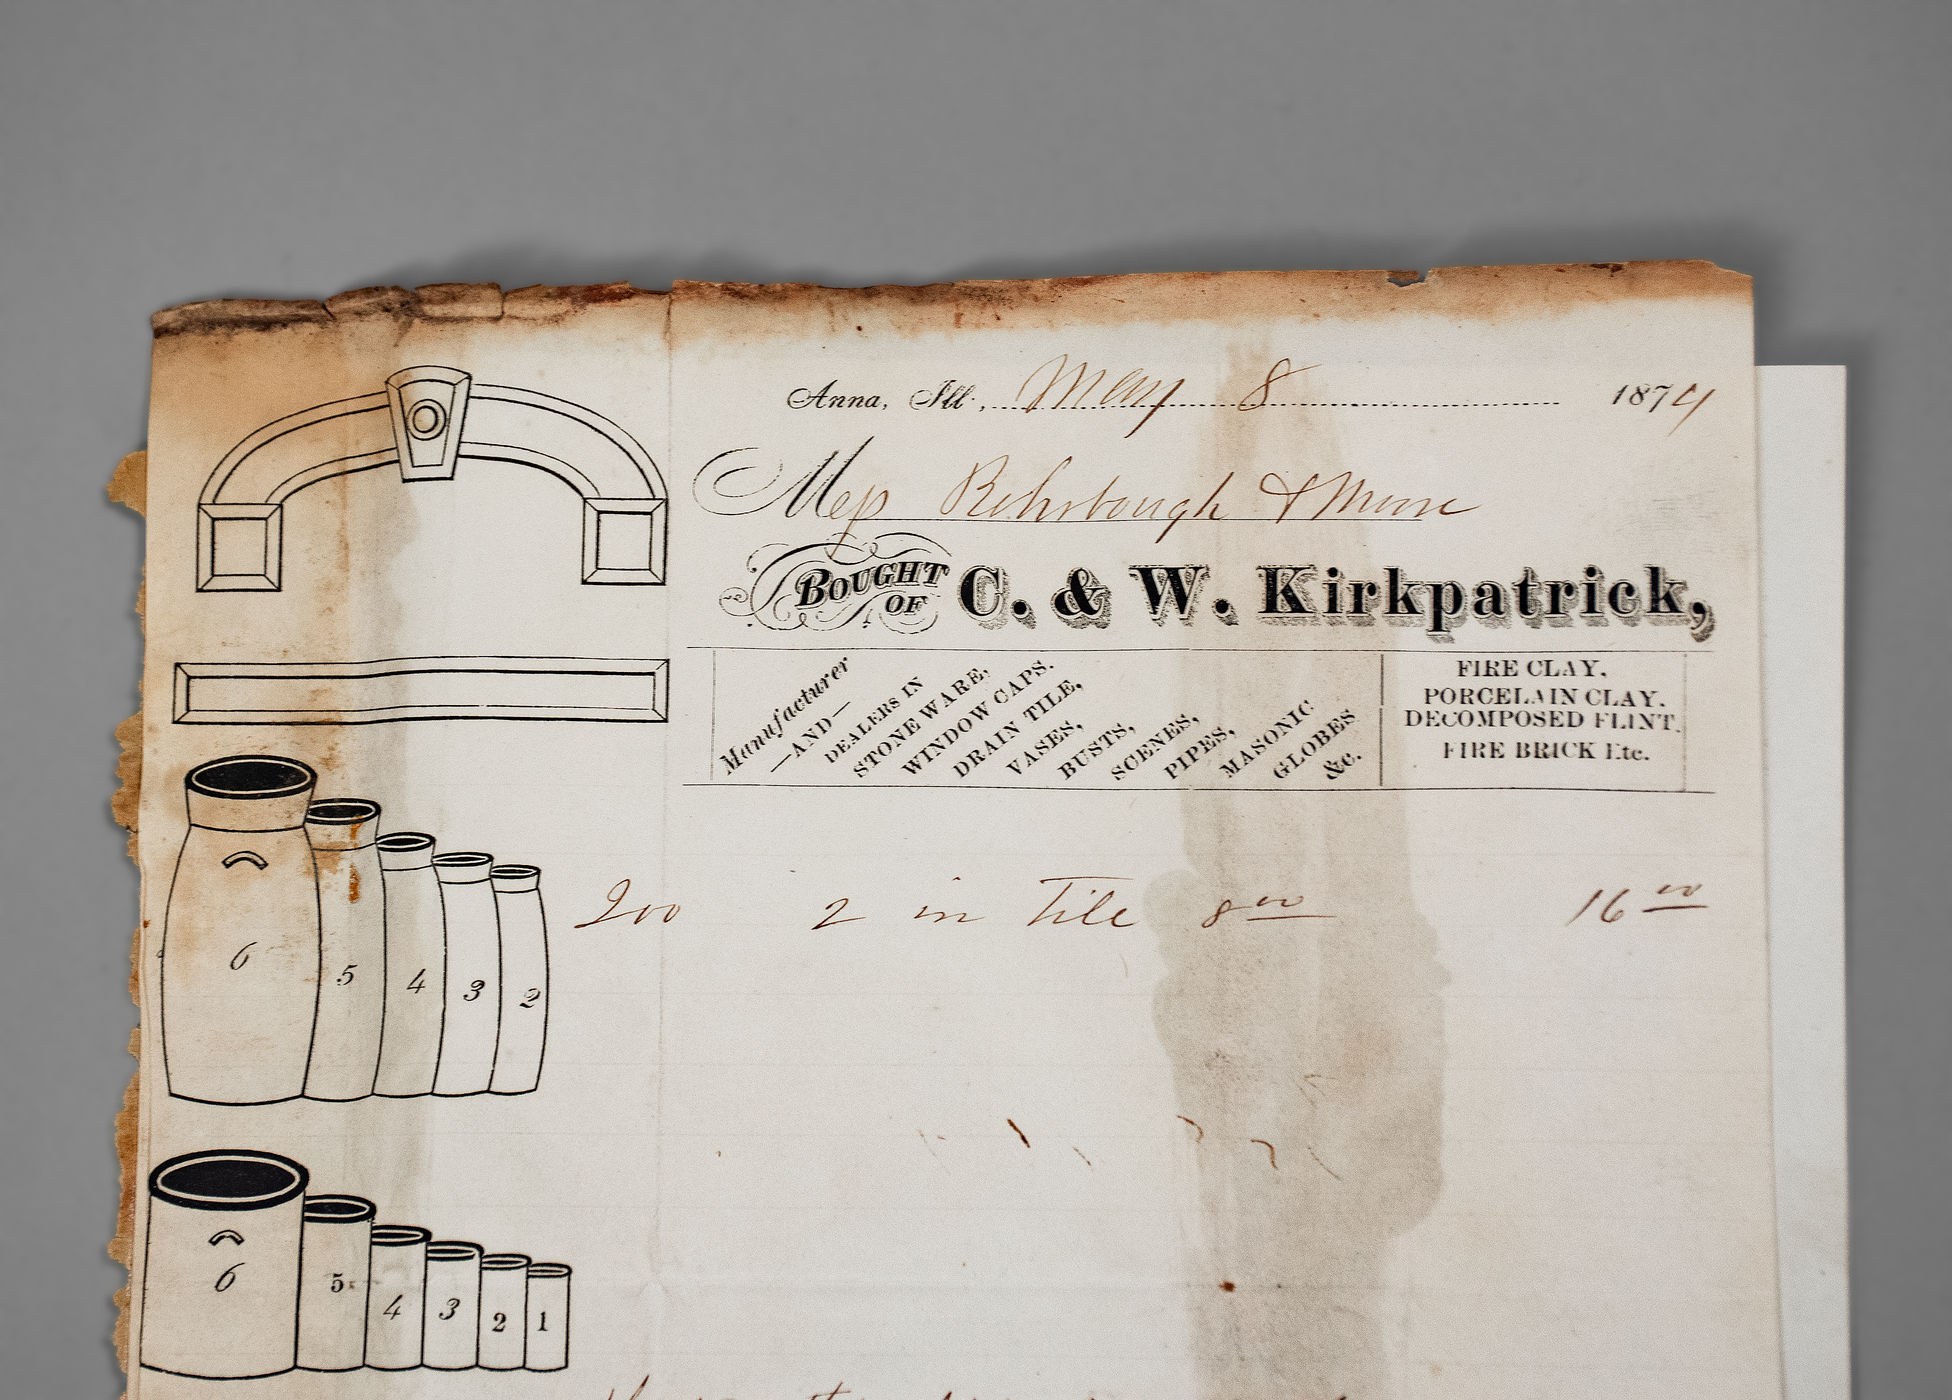 Anna, Ill., May 8 1874
Mess Rohrbough & Moore
BOUGHT OF C. & W. Kirkpatrick,
Manufacturer
—AND—
DEALERS IN
STONE WARE,
WINDOW CAPS.
DRAIN TILE,
VASES,
BUSTS,
SCENES,
PIPES,
MASONIC
GLOBES
&c.
FIRE CLAY.
PORCELAIN CLAY.
DECOMPOSED FLINT.
FIRE BRICK Etc.
200 2 in Tile 8 00 16 00
6 5 4 3 2
6 5 4 3 2 1